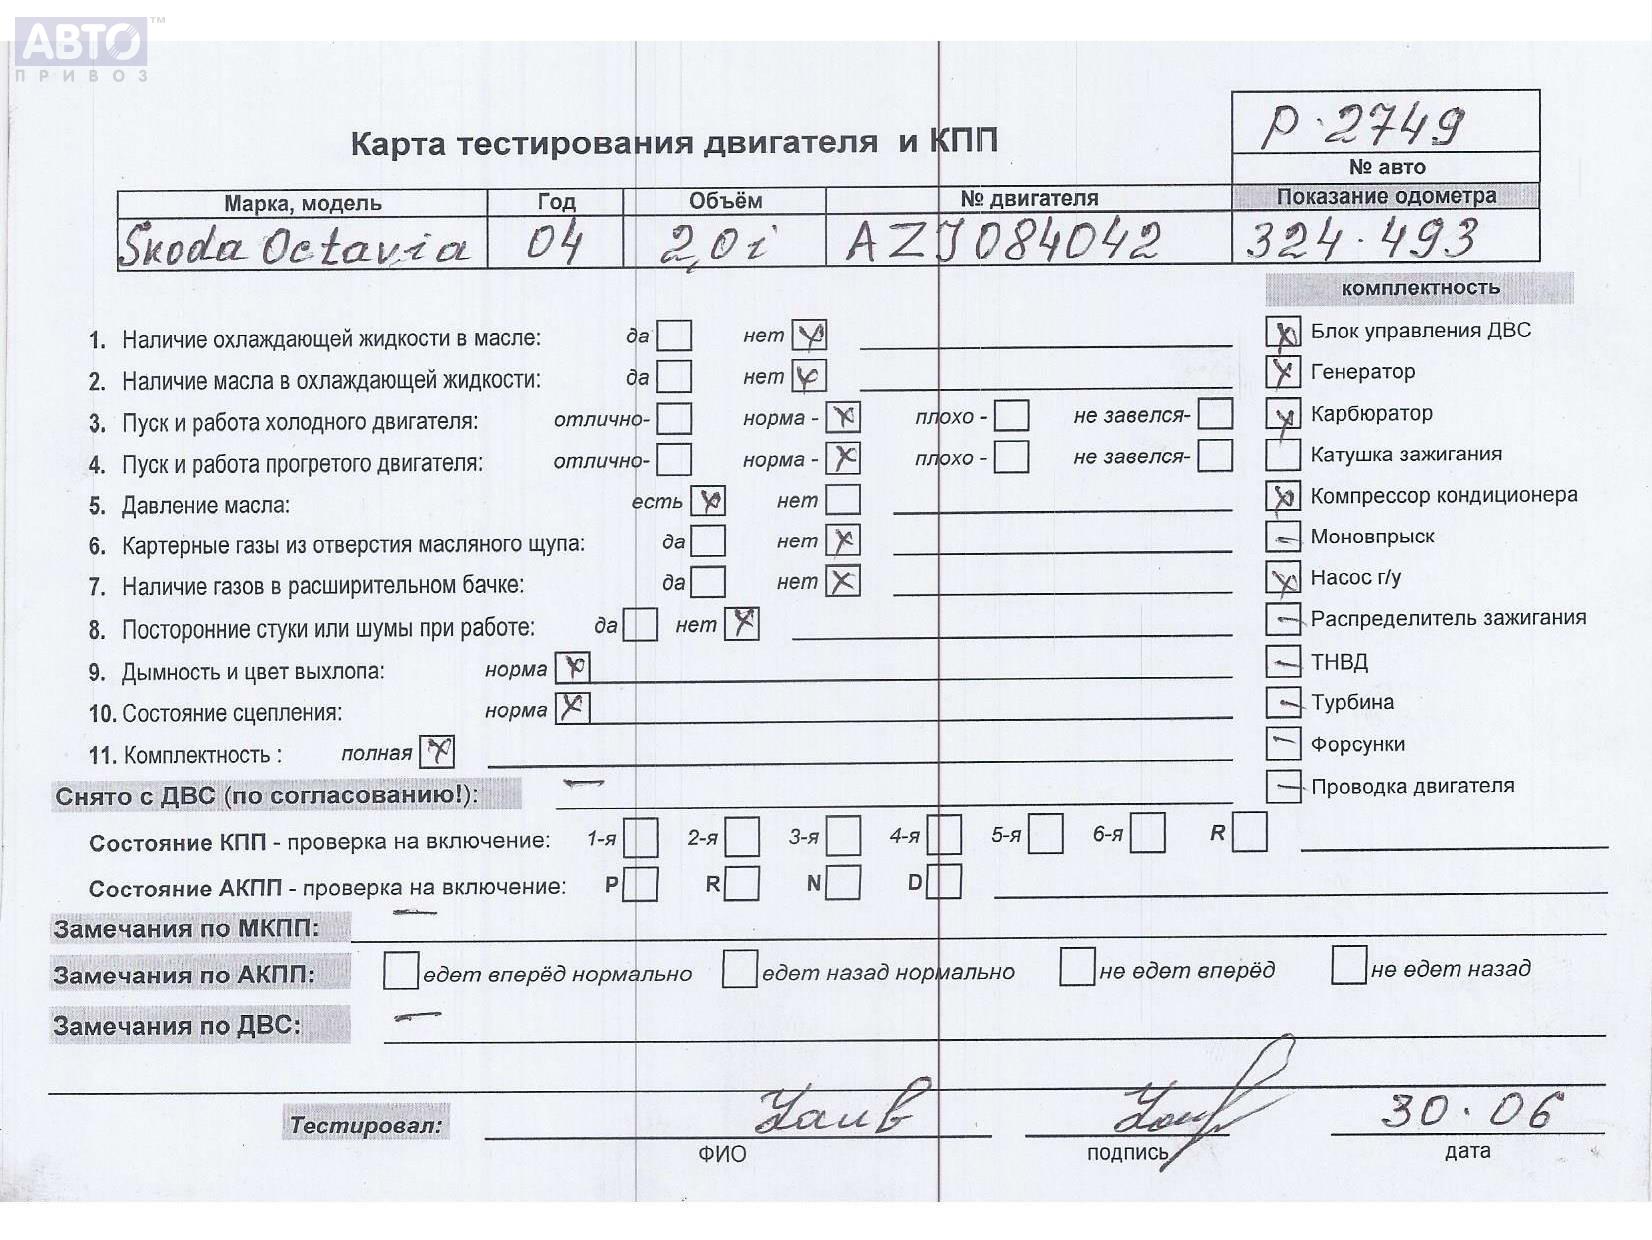 АВТО™
ПРИВОЗ
P·2749
Карта тестирования двигателя и КПП
№ авто
Марка, модель Год Объём № двигателя Показание одометра
Skoda Octavia 04 2,0i AZJ084042 324.493
комплектность
1. Наличие охлаждающей жидкости в масле: да нет Блок управления ДВС
2. Наличие масла в охлаждающей жидкости: да нет Генератор
3. Пуск и работа холодного двигателя: отлично- норма - плохо - не завелся- Карбюратор
4. Пуск и работа прогретого двигателя: отлично- норма - плохо - не завелся- Катушка зажигания
5. Давление масла: есть нет Компрессор кондиционера
6. Картерные газы из отверстия масляного щупа: да нет Моновпрыск
7. Наличие газов в расширительном бачке: да нет Насос г/у
8. Посторонние стуки или шумы при работе: да нет Распределитель зажигания
9. Дымность и цвет выхлопа: норма ТНВД
10. Состояние сцепления: норма Турбина
11. Комплектность : полная Форсунки
Снято с ДВС (по согласованию!): — Проводка двигателя
Состояние КПП - проверка на включение: 1-я 2-я 3-я 4-я 5-я 6-я R
Состояние АКПП - проверка на включение: P R N D
Замечания по МКПП: —
Замечания по АКПП: едет вперёд нормально едет назад нормально не едет вперёд не едет назад
Замечания по ДВС: —
Тестировал: 30.06
ФИО подпись дата